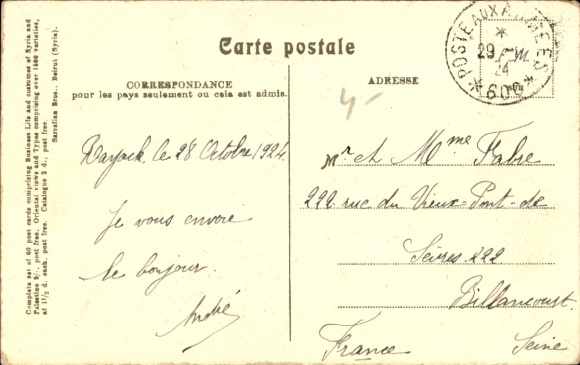 Carte postale
CORRESPONDANCE
pour les pays seulement ou cela est admis.
ADRESSE
Complete set of 60 post cards comprising Business Life and costumes of Syria and
Palestine 9/-, post free. Oriental views and Types comprising over 1500 varieties,
at 1 1/2 d. each. post free. Catalogue 2 d., post free.
Sarrafian Bros., Beirut (Syria).
POSTE AUX ARMEES
29
24
* 600 *
4-
le 28 Octobre 1924.
Je vous envoie
le bonjour.
André
Mr et Mme Fabre
222 rue du Vieux-Pont-de
Sèvres 222
Billancourt.
Seine
France